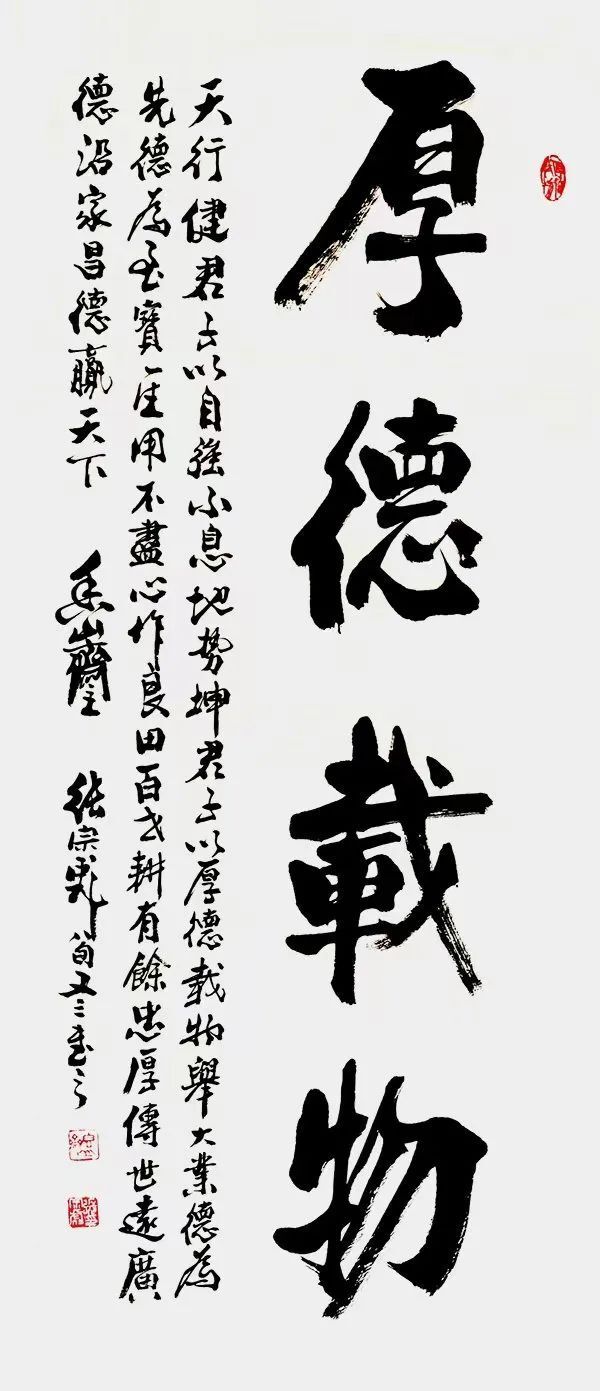 厚德載物
天行健君子以自強不息地势坤君子以厚德载物舉大業德為
先德為至寶一生用不盡心作良田百世耕有餘忠厚傳世遠廣
德沿家昌德贏天下
張宗彪